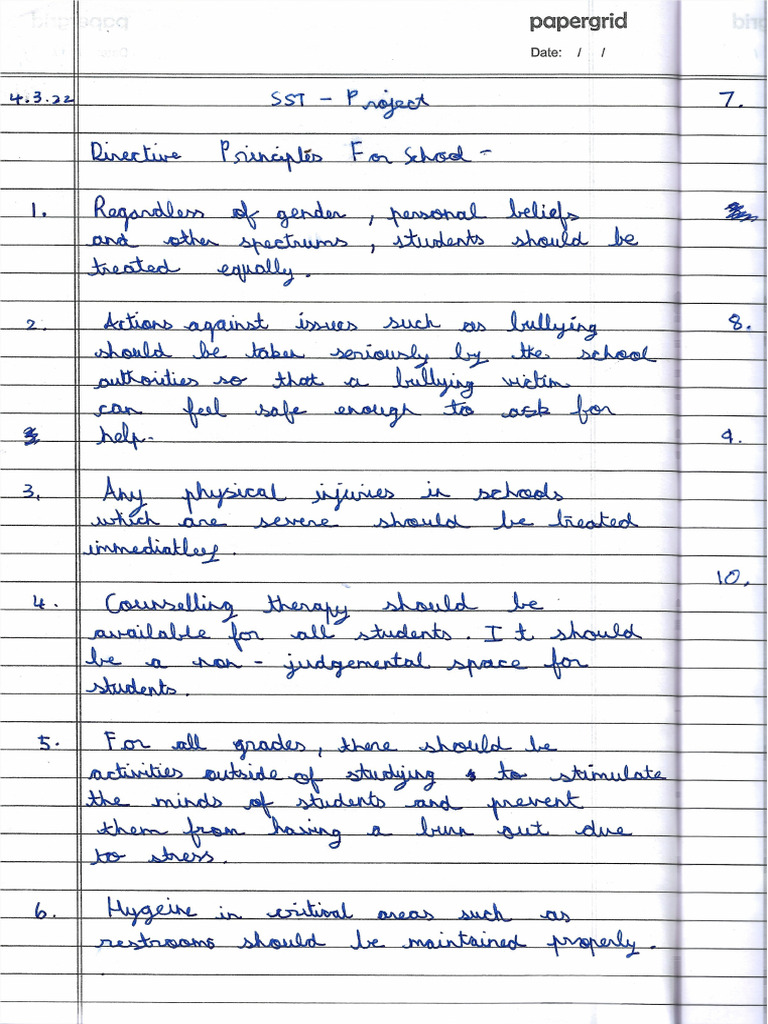 papergrid
Date: / /
4.3.22 SST - Project
Directive Principles For School -
1. Regardless of gender, personal beliefs
and other spectrums, students should be
treated equally.
2. Actions against issues such as bullying
should be taken seriously by the school
authorities so that a bullying victim
can feel safe enough to ask for
help.
3. Any physical injuries in schools
which are severe should be treated
immediatley.
4. Counselling therapy should be
available for all students. It should
be a non - judgemental space for
students.
5. For all grades, there should be
activities outside of studying to stimulate
the minds of students and prevent
them from having a burn out due
to stress.
6. Hygeine in critical areas such as
restrooms should be maintained properly.
7.
8.
9.
10.